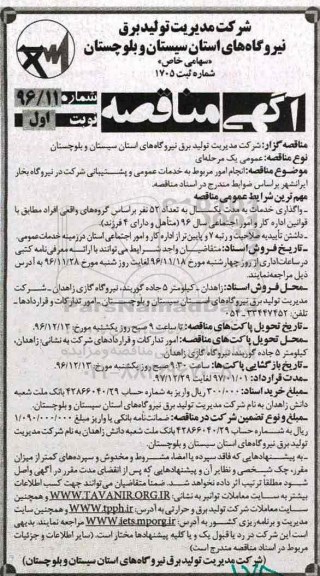 شرکت مدیریت تولید برق
نیروگاه‌های استان سیستان و بلوچستان
«سهامی خاص»
شماره ثبت ۱۷۰۵
آگهی مناقصه
شماره ۹۶/۱۱
نوبت اول
مناقصه گزار: شرکت مدیریت تولید برق نیروگاه‌های استان سیستان و بلوچستان
نوع مناقصه: عمومی یک مرحله‌ای
موضوع مناقصه: انجام امور مربوط به خدمات عمومی و پشتیبانی شرکت در نیروگاه بخار
ایرانشهر براساس ضوابط مندرج در اسناد مناقصه.
مهم‌ترین شرایط عمومی مناقصه
- واگذاری خدمات به مدت یکسال به تعداد ۵۲ نفر براساس گروه‌های واقعی افراد مطابق با
قوانین اداره کار و امور اجتماعی سال ۹۶ (متأهل و دارای ۲ فرزند).
- داشتن تأییدیه صلاحیت و رتبه ۷ و پایین‌تر از اداره کار و امور اجتماعی استان در زمینه خدمات عمومی.
- تاریخ فروش اسناد: متقاضیان واجد شرایط می‌توانند با ارائه معرفی‌نامه کتبی
در ساعات اداری از روز چهارشنبه مورخ ۹۶/۱۱/۱۸ لغایت روز شنبه مورخ ۹۶/۱۱/۲۸ به آدرس
ذیل مراجعه نمایند.
- محل فروش اسناد: زاهدان - کیلومتر ۵ جاده گوربند، نیروگاه گازی زاهدان - شرکت
مدیریت تولید برق نیروگاه‌های استان سیستان و بلوچستان - امور تدارکات و قراردادها -
تلفن: ۳۳۴۴۷۴۵۲-۰۵۴
- تاریخ تحویل پاکت‌های مناقصه: تا ساعت ۹ صبح روز یکشنبه مورخ: ۹۶/۱۲/۱۳
- محل تحویل پاکت‌های مناقصه: امور تدارکات و قراردادهای شرکت به نشانی: زاهدان،
کیلومتر ۵ جاده گوربند، نیروگاه گازی زاهدان.
- تاریخ بازگشایی پاکت‌ها: ساعت ۹:۳۰ صبح روز یکشنبه مورخ: ۹۶/۱۲/۱۳
- مدت قرارداد: ۹۷/۰۱/۰۱ لغایت ۹۷/۱۲/۲۹
- مبلغ خرید اسناد: ۳۰۰/۰۰۰ ریال واریز به شماره حساب ۴۲۸۶۶۰۴۰/۲۹ بانک ملت شعبه
دانش زاهدان به نام شرکت مدیریت تولید برق نیروگاه‌های استان سیستان و بلوچستان.
- مبلغ و نوع تضمین شرکت در مناقصه: ضمانت‌نامه بانکی یا واریز مبلغ ۱/۰۹۰/۰۰۰/۰۰۰
ریال به شماره حساب ۴۲۸۶۶۰۴۰/۲۹ بانک ملت شعبه دانش زاهدان به نام شرکت مدیریت
تولید برق نیروگاه‌های استان سیستان و بلوچستان.
- به پیشنهادهایی که فاقد سپرده یا امضا، مشروط و مخدوش و سپرده‌های کمتر از میزان
مقرر، چک شخصی و نظایر آن و پیشنهادهایی که پس از انقضای مدت مقرر در آگهی واصل
شود مطلقا ترتیب اثر داده نخواهد شد. ضمنا متقاضیان می‌توانند جهت کسب اطلاعات
بیشتر به سایت معاملات توانیر به نشانی: WWW.TAVANIR.ORG.IR و همچنین
سایت معاملات شرکت تولید برق و حرارتی به آدرس: www.tpph.ir و همچنین سایت
مدیریت و برنامه‌ریزی کشور به آدرس: www.iets.mporg.ir مراجعه نمایند. بدیهی
است این شرکت در رد یا قبول یک و یا کلیه پیشنهادها مختار است. (سایر اطلاعات و جزئیات
مربوط در اسناد مناقصه مندرج است)
(شرکت مدیریت تولید برق نیروگاه‌های استان سیستان و بلوچستان)